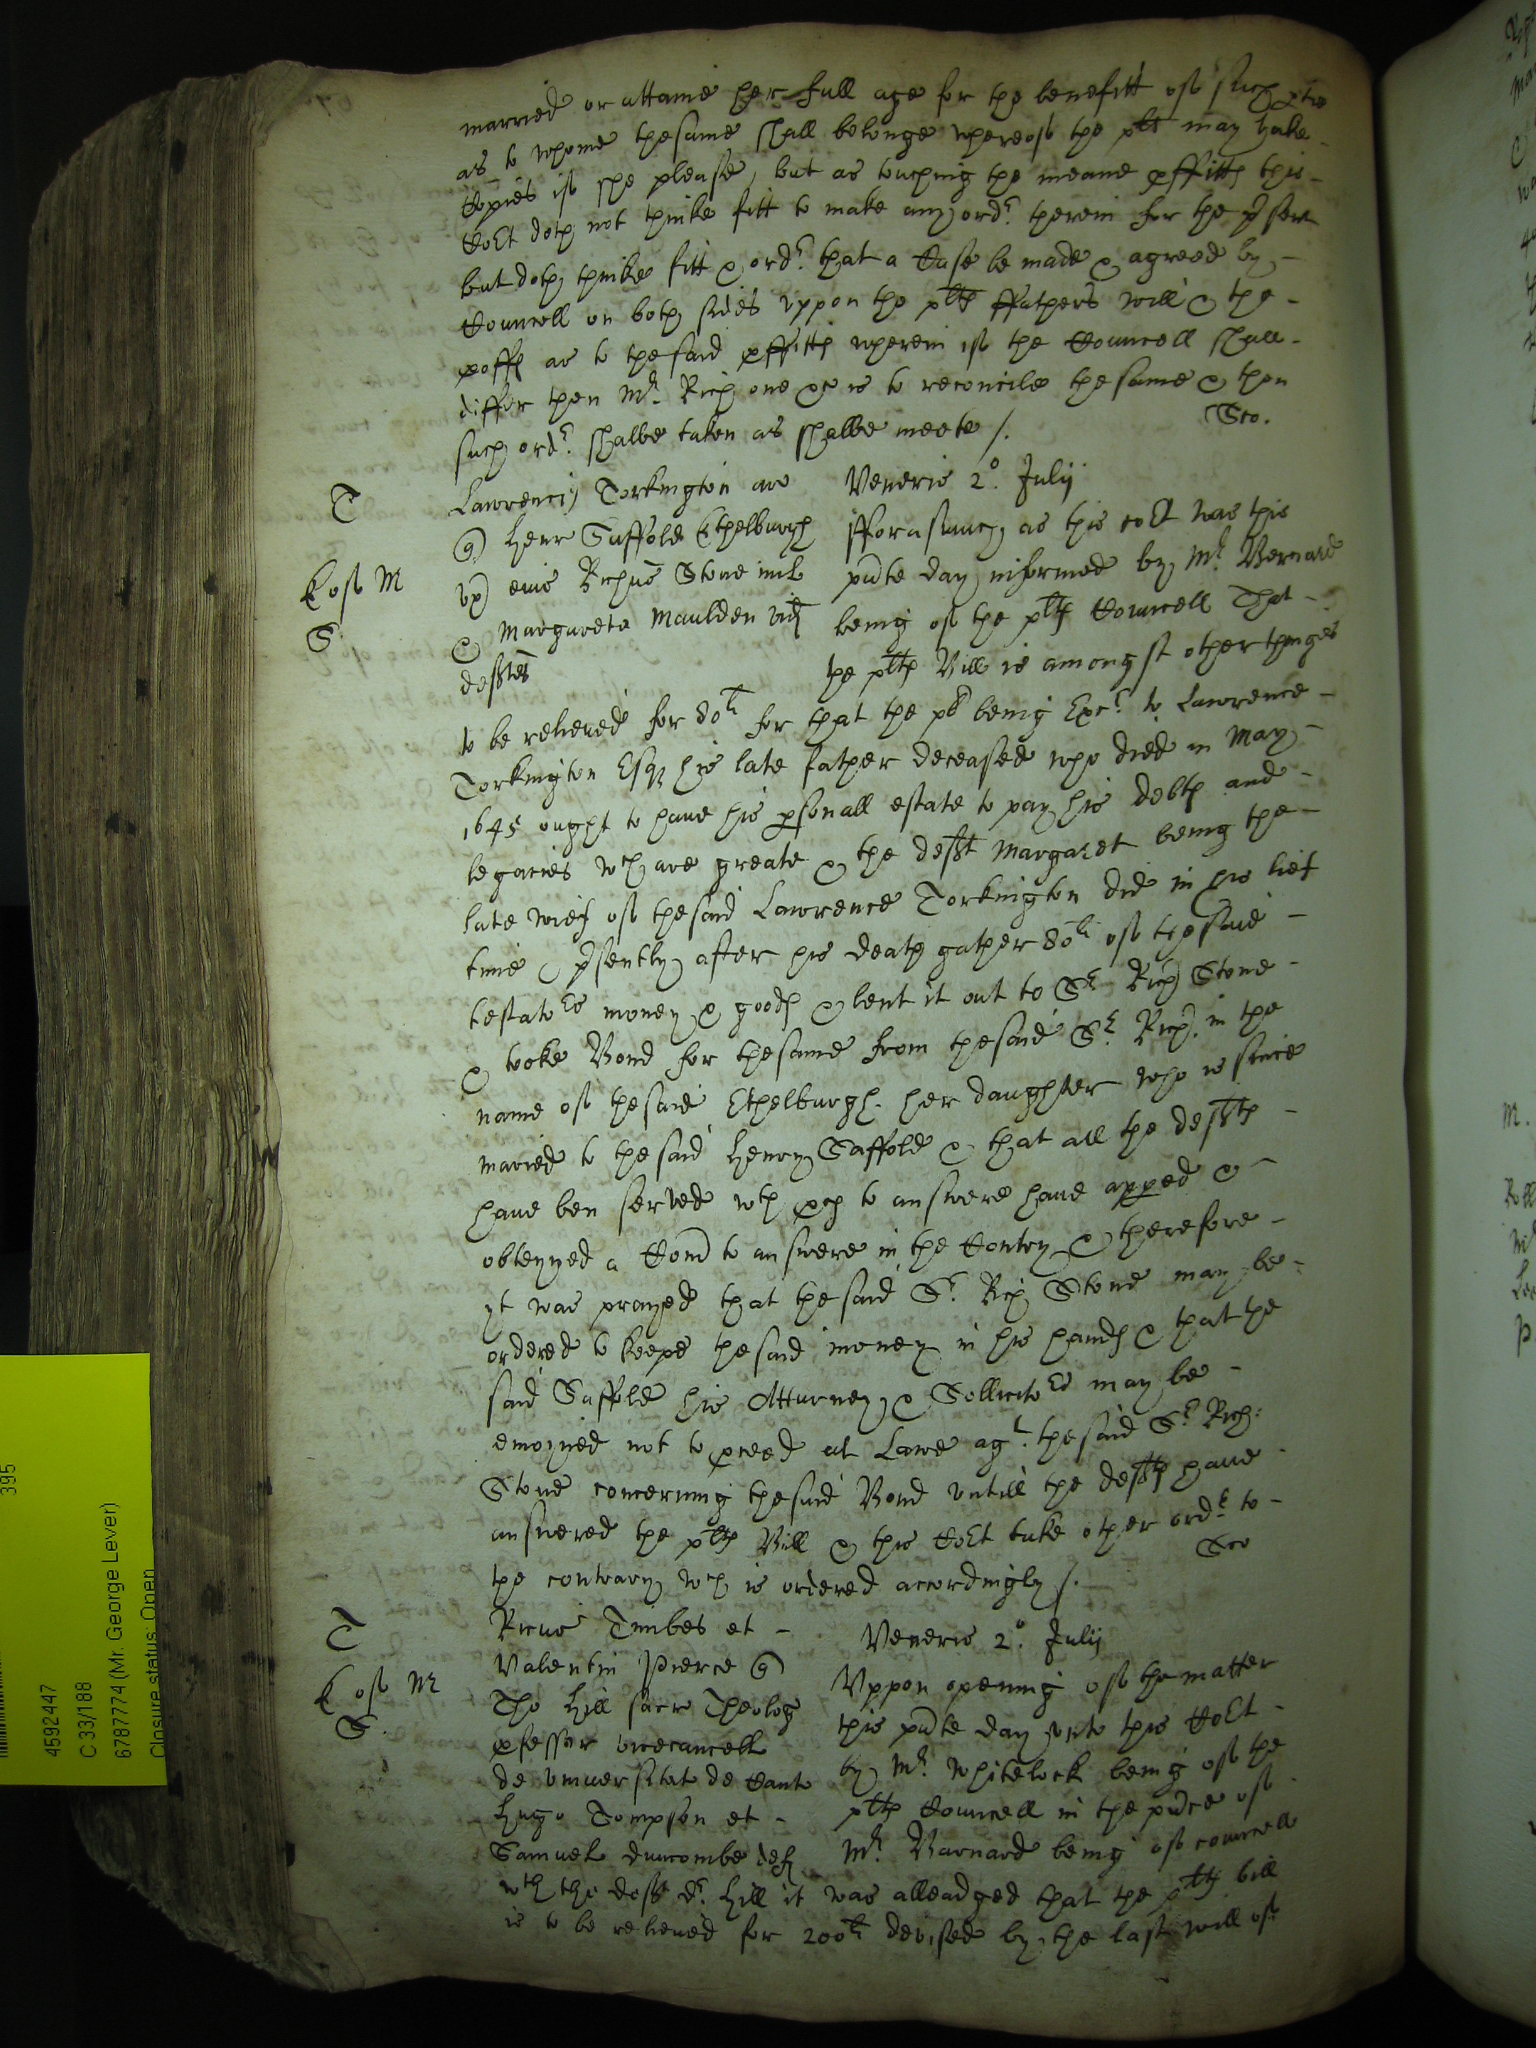 married or attaine her full age for the benefitt of such ptie
as to whome the same shall belonge whereof the plt may take
Copies if she please, but as touching the meane pffitts this
Cort doth not thinke fitt to make any ordr therein for the pñte
but doth thinke fitt & ordr that a Case be made & agreed by
Councell on both sides vppon the plts ffathers will & the
as to the said pffitts wherein if the Councell shall
differ then Mr Rich one &c is to reconcile the same & then
such ordr shalbe taken as shalbe meete /.
Sco.
T
Lawrenciꝯ Torkington ar
Veneris 2o. Julij
Henr Saffold Ethelburgh
fforasmuch as this cort was this
k of M
ux eius Richus Stone mil
pñte day informed by Mr Bernard
S
& Margareta Maulden vid
being of the plts Councell That
deftes
the plts Bill is amongst other things
to be relieved for 80li for that the plt being Exr to Lawrence
Torkington Esqr his late father deceased who died in May
1645 ought to have his psonall estate to pay his debts and
legacies wch are greate & the deft Margaret being the
late wief of the said Lawrence Torkington did in his lief
time & psently after his death gather 80li of the said
testators money & goods & lent it out to Sr Rich Stone
& tooke Bond for the same from the said Sr Rich. in the
name of the said Ethelburgh her daughter who is since
maried to the said Henry Saffold & that all the defts
have ben served wth pces to answere have apped &
obteyned a Comd to answere in the Contry & therefore
yt was prayed that the said Sr. Rich Stone may be
ordered to keepe the said money in his hands & that the
said Saffold his Atturney & Sollicitors may be
enioyned not to pceed at Lawe agt. the said Sr Rich:
Stone concerning the said Bond untill the defts have
answered the plts Bill & this Cort take other ordr to
the contrary wch is ordered accordingly /.
Sco
T
Ricus Timbes et
Veneris 2o. Julij
k of M
Valentin Pierce
Vppon opening of the matter
S.
Tho Hill sacr Theolog
this pñte day unto this Cort
pfessor vicecancell
by Mr. Whitelock being of the
de vniuersitat de Cant
plts Councell in the pñce of
Hugo Tompson et
Mr. Barnard being of councell
Samuel Duncombe def
wth the deft dr. Hill it was alleadged that the plts bill
is to be relieved for 200li devised by the last will of
395
4592447
C 33/188
6787774 (Mr. George Lever)
Closure status: Open